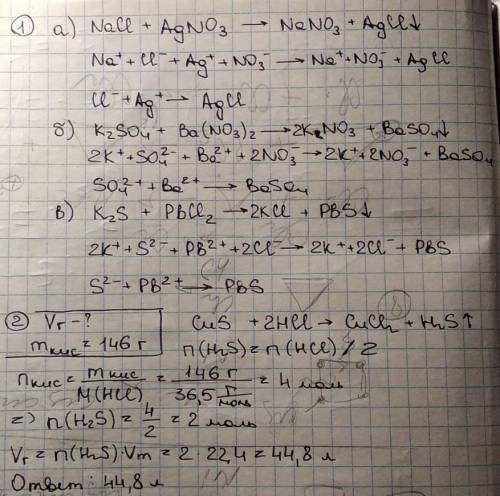 ① а) NaCl + AgNO₃ → NaNO₃ + AgCl↓
Na⁺ + Cl⁻ + Ag⁺ + NO₃⁻ → Na⁺ + NO₃⁻ + AgCl
Cl⁻ + Ag⁺ → AgCl
б) K₂SO₄ + Ba(NO₃)₂ → 2K₂NO₃ + BaSO₄↓
2K⁺ + SO₄²⁻ + Ba²⁺ + 2NO₃⁻ → 2K⁺ + 2NO₃⁻ + BaSO₄
SO₄²⁺ + Ba²⁺ → BaSO₄
в) K₂S + PBCl₂ → 2KCl + PBS↓
2K⁺ + S²⁻ + PB²⁺ + 2Cl⁻ → 2K⁺ + 2Cl⁻ + PBS
S²⁻ + PB²⁺ → PBS
② Vг - ? CuS + 2HCl → CuCl₂ + H₂S↑
mкис = 146 г n(H₂S) = n(HCl) / 2
nкис = mкис / M(HCl) = 146 г / 36,5 г/моль = 4 моль
=> n(H₂S) = 4/2 = 2 моль
Vг = n(H₂S) · Vm = 2 · 22,4 = 44,8 л
Ответ: 44,8 л